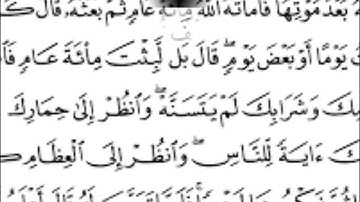 بَعْدَ مَوْتِهَا فَأَمَاتَهُ اللَّهُ مِائَةَ عَامٍ ثُمَّ بَعَثَهُ قَالَ
يَوْمًا أَوْ بَعْضَ يَوْمٍ ۖ قَالَ بَل لَّبِثْتَ مِائَةَ عَامٍ
وَشَرَابِكَ لَمْ يَتَسَنَّهْ ۖ وَانظُرْ إِلَىٰ حِمَارِكَ
ءَايَةً لِّلنَّاسِ ۖ وَانظُرْ إِلَى الْعِظَامِ